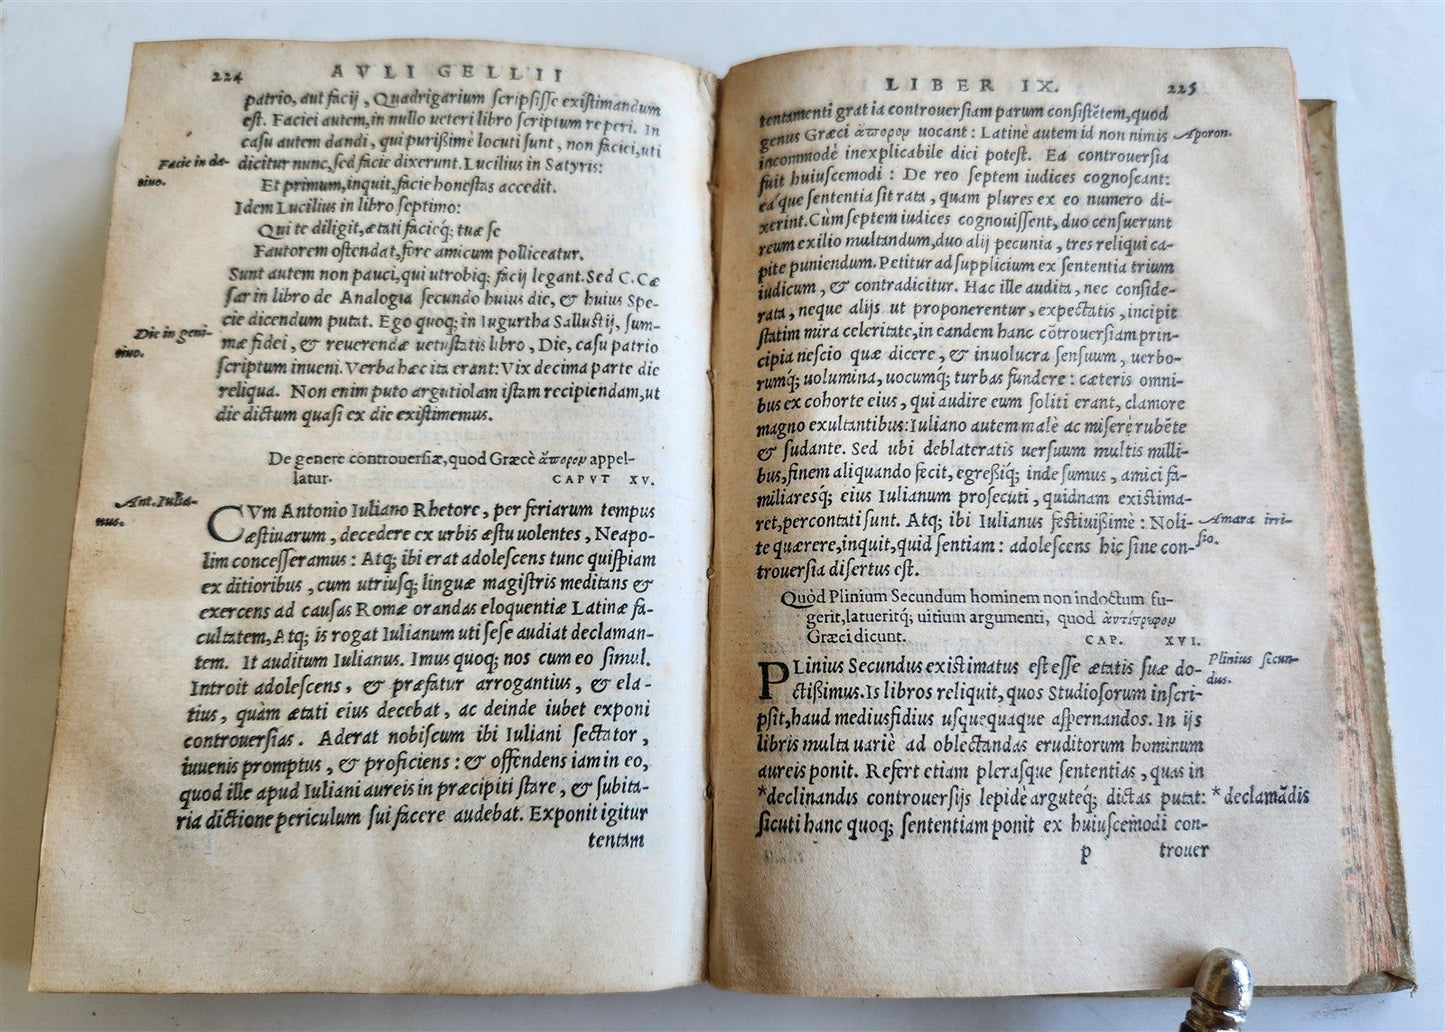 224 AVLI GELLII
patrio, aut facij, Quadrigarium scripsisse existimandum
est. Faciei autem, in nullo ueteri libro scriptum reperi. In
casu autem dandi, qui purißimè locuti sunt, non faciei, uti
Facie in da-
tiuo.
dicitur nunc, sed facie dixerunt. Lucilius in Satyris:
Et primum, inquit, facie honestas accedit.
Idem Lucilius in libro septimo:
Qui te diligit, ætati facieq; tuæ se
Fautorem ostendat, fore amicum polliceatur.
Sunt autem non pauci, qui utrobiq; facij legant. Sed C. Cæ
sar in libro de Analogia secundo huius die, & huius Spe-
cie dicendum putat. Ego quoq; in Iugurtha Sallustij, sum-
Die in geni-
tiuo.
mæ fidei, & reuerendæ uetustatis libro, Die, casu patrio
scriptum inueni. Verba hæc ita erant: Vix decima parte die
reliqua. Non enim puto argutiolam istam recipiendam, ut
die dictum quasi ex die existimemus.
De genere controuersiæ, quod Græcè ἄπορον appel-
latur. CAPVT XV.
Ant. Iulia-
nus.
CVm Antonio Iuliano Rhetore, per feriarum tempus
æstiuarum, decedere ex urbis æstu uolentes, Neapo-
lim concesseramus: Atq; ibi erat adolescens tunc quispiam
ex ditioribus, cum utriusq; linguæ magistris meditans &
exercens ad causas Romæ orandas eloquentiæ Latinæ fa-
cultatem, Atq; is rogat Iulianum uti sese audiat declaman-
tem. It auditum Iulianus. Imus quoq; nos cum eo simul.
Introit adolescens, & præfatur arrogantius, & ela-
tius, quàm ætati eius decebat, ac deinde iubet exponi
controuersias. Aderat nobiscum ibi Iuliani sectator,
iuuenis promptus, & proficiens: & offendens iam in eo,
quod ille apud Iuliani aureis in præcipiti stare, & subita-
ria dictione periculum sui facere audebat. Exponit igitur
tentam
LIBER IX. 225
tentamenti gratia controuersiam parum consistẽtem, quod
genus Græci ἄπορον uocant: Latinè autem id non nimis
Aporon.
incommodè inexplicabile dici potest. Ea controuersia
fuit huiuscemodi: De reo septem iudices cognoscant:
ea´que sententia sit rata, quam plures ex eo numero di-
xerint. Cùm septem iudices cognouissent, duo censuerunt
reum exilio multandum, duo alij pecunia, tres reliqui ca-
pite puniendum. Petitur ad supplicium ex sententia trium
iudicum, & contradicitur. Hac ille audita, nec conside-
rata, neque alijs ut proponerentur, expectatis, incipit
statim mira celeritate, in eandem hanc cõtrouersiam prin-
cipia nescio quæ dicere, & inuolucra sensuum, uerbo-
rumq́; uolumina, uocumq́; turbas fundere: cæteris omni-
bus ex cohorte eius, qui audire eum soliti erant, clamore
magno exultantibus: Iuliano autem malè ac miserè rubẽte
& sudante. Sed ubi deblateratis uersuum multis milli-
bus, finem aliquando fecit, egreßiq́; inde sumus, amici fa-
miliaresq́; eius Iulianum prosecuti, quidnam existima-
ret, percontati sunt. Atq; ibi Iulianus festiuißimè: Noli-
Amara irri-
sio.
te quærere, inquit, quid sentiam: adolescens hic sine con-
trouersia disertus est.
Quòd Plinium Secundum hominem non indoctum fu-
gerit, latueritq́; uitium argumenti, quod ἀντίστρεφον
Græci dicunt. CAP. XVI.
PLinius Secundus existimatus est esse ætatis suæ do-
Plinius secun-
dus.
ctißimus. Is libros reliquit, quos Studiosorum inscri-
psit, haud mediusfidius usquequaque aspernandos. In ijs
libris multa uariè ad oblectandas eruditorum hominum
aureis ponit. Refert etiam plerasque sententias, quas in
*declinandis controuersijs lepidè arguteq́; dictas putat: *declamãdis
sicuti hanc quoq; sententiam ponit ex huiuscemodi con-
p trouer